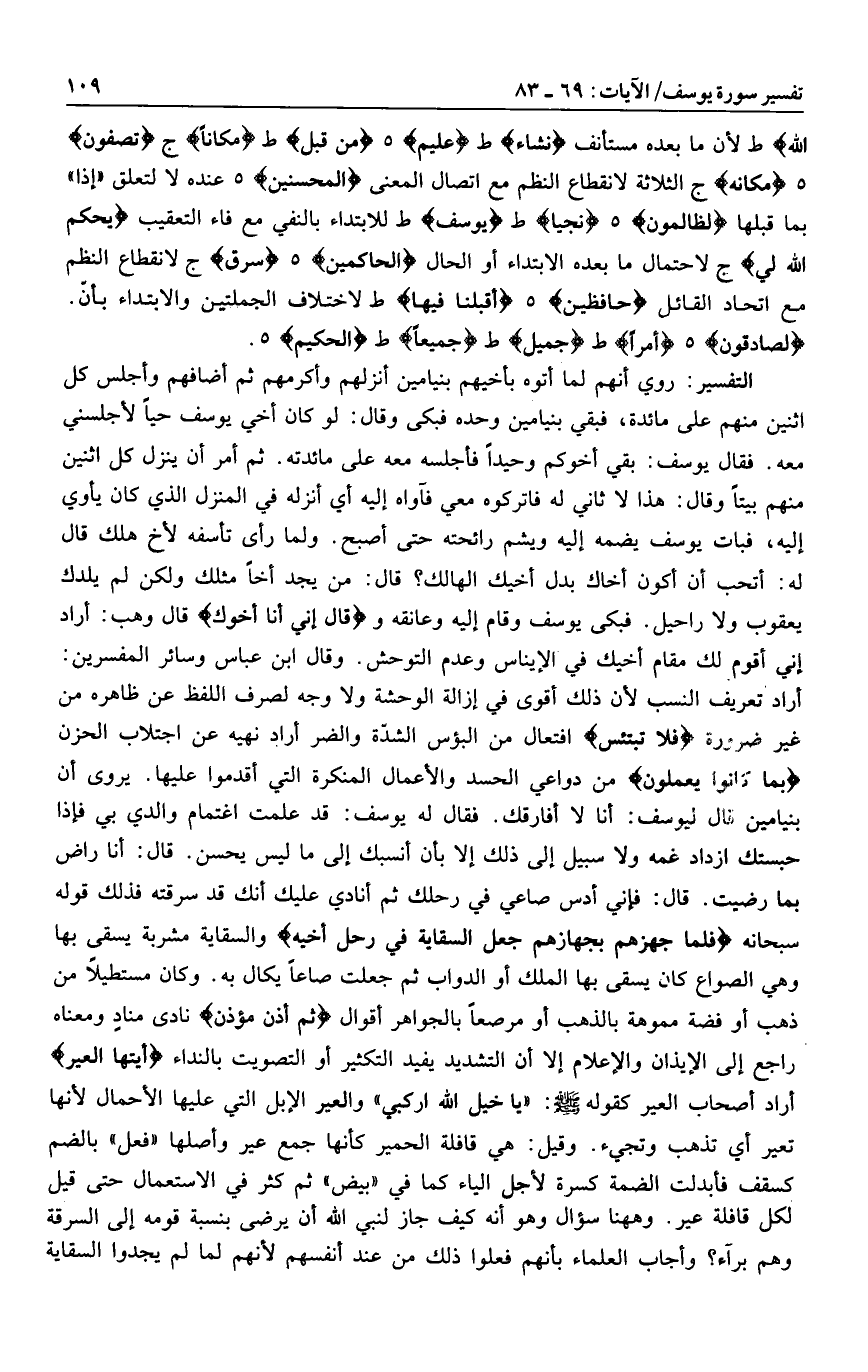 تفسير سورة يوسف/ الآيات: ٦٩ ـ ٨٣ ١٠٩
الله﴾ ط لأن ما بعده مستأنف ﴿نشاء﴾ ط ﴿عليم﴾ ٥ ﴿من قبل﴾ ط ﴿مكاناً﴾ ج ﴿تصفون﴾
٥ ﴿مكانه﴾ ج الثلاثة لانقطاع النظم مع اتصال المعنى ﴿المحسنين﴾ ٥ عنده لا لتعلق «إذا»
بما قبلها ﴿لظالمون﴾ ٥ ﴿نجيا﴾ ط ﴿يوسف﴾ ط للابتداء بالنفي مع فاء التعقيب ﴿يحكم
الله لي﴾ ج لاحتمال ما بعده الابتداء أو الحال ﴿الحاكمين﴾ ٥ ﴿سرق﴾ ج لانقطاع النظم
مع اتحاد القائل ﴿حافظين﴾ ٥ ﴿أقبلنا فيها﴾ ط لاختلاف الجملتين والابتداء بأنّ.
﴿لصادقون﴾ ٥ ﴿أمراً﴾ ط ﴿جميل﴾ ط ﴿جميعاً﴾ ط ﴿الحكيم﴾ ٥.
التفسير: روي أنهم لما أتوه بأخيهم بنيامين أنزلهم وأكرمهم ثم أضافهم وأجلس كل
اثنين منهم على مائدة، فبقي بنيامين وحده فبكى وقال: لو كان أخي يوسف حياً لأجلسني
معه. فقال يوسف: بقي أخوكم وحيداً فأجلسه معه على مائدته. ثم أمر أن ينزل كل اثنين
منهم بيتاً وقال: هذا لا ثاني له فاتركوه معي فآواه إليه أي أنزله في المنزل الذي كان يأوي
إليه، فبات يوسف يضمه إليه ويشم رائحته حتى أصبح. ولما رأى تأسفه لأخ هلك قال
له: أتحب أن أكون أخاك بدل أخيك الهالك؟ قال: من يجد أخاً مثلك ولكن لم يلدك
يعقوب ولا راحيل. فبكى يوسف وقام إليه وعانقه و ﴿قال إني أنا أخوك﴾ قال وهب: أراد
إني أقوم لك مقام أخيك في الإيناس وعدم التوحش. وقال ابن عباس وسائر المفسرين:
أراد تعريف النسب لأن ذلك أقوى في إزالة الوحشة ولا وجه لصرف اللفظ عن ظاهره من
غير ضرورة ﴿فلا تبتئس﴾ افتعال من البؤس الشدّة والضر أراد نهيه عن اجتلاب الحزن
﴿بما كانوا يعملون﴾ من دواعي الحسد والأعمال المنكرة التي أقدموا عليها. يروى أن
بنيامين قال ليوسف: أنا لا أفارقك. فقال له يوسف: قد علمت اغتمام والدي بي فإذا
حبستك ازداد غمه ولا سبيل إلى ذلك إلا بأن أنسبك إلى ما ليس يحسن. قال: أنا راض
بما رضيت. قال: فإني أدس صاعي في رحلك ثم أنادي عليك أنك قد سرقته فذلك قوله
سبحانه ﴿فلما جهزهم بجهازهم جعل السقاية في رحل أخيه﴾ والسقاية مشربة يسقى بها
وهي الصواع كان يسقى بها الملك أو الدواب ثم جعلت صاعاً يكال به. وكان مستطيلاً من
ذهب أو فضة مموهة بالذهب أو مرصعاً بالجواهر أقوال ﴿ثم أذن مؤذن﴾ نادى منادٍ ومعناه
راجع إلى الإيذان والإعلام إلا أن التشديد يفيد التكثير أو التصويت بالنداء ﴿أيتها العير﴾
أراد أصحاب العير كقوله ﷺ: «يا خيل الله اركبي» والعير الإبل التي عليها الأحمال لأنها
تعير أي تذهب وتجيء. وقيل: هي قافلة الحمير كأنها جمع عير وأصلها «فعل» بالضم
كسقف فأبدلت الضمة كسرة لأجل الياء كما في «بيض» ثم كثر في الاستعمال حتى قيل
لكل قافلة عير. وههنا سؤال وهو أنه كيف جاز لنبي الله أن يرضى بنسبة قومه إلى السرقة
وهم برآء؟ وأجاب العلماء بأنهم فعلوا ذلك من عند أنفسهم لأنهم لما لم يجدوا السقاية